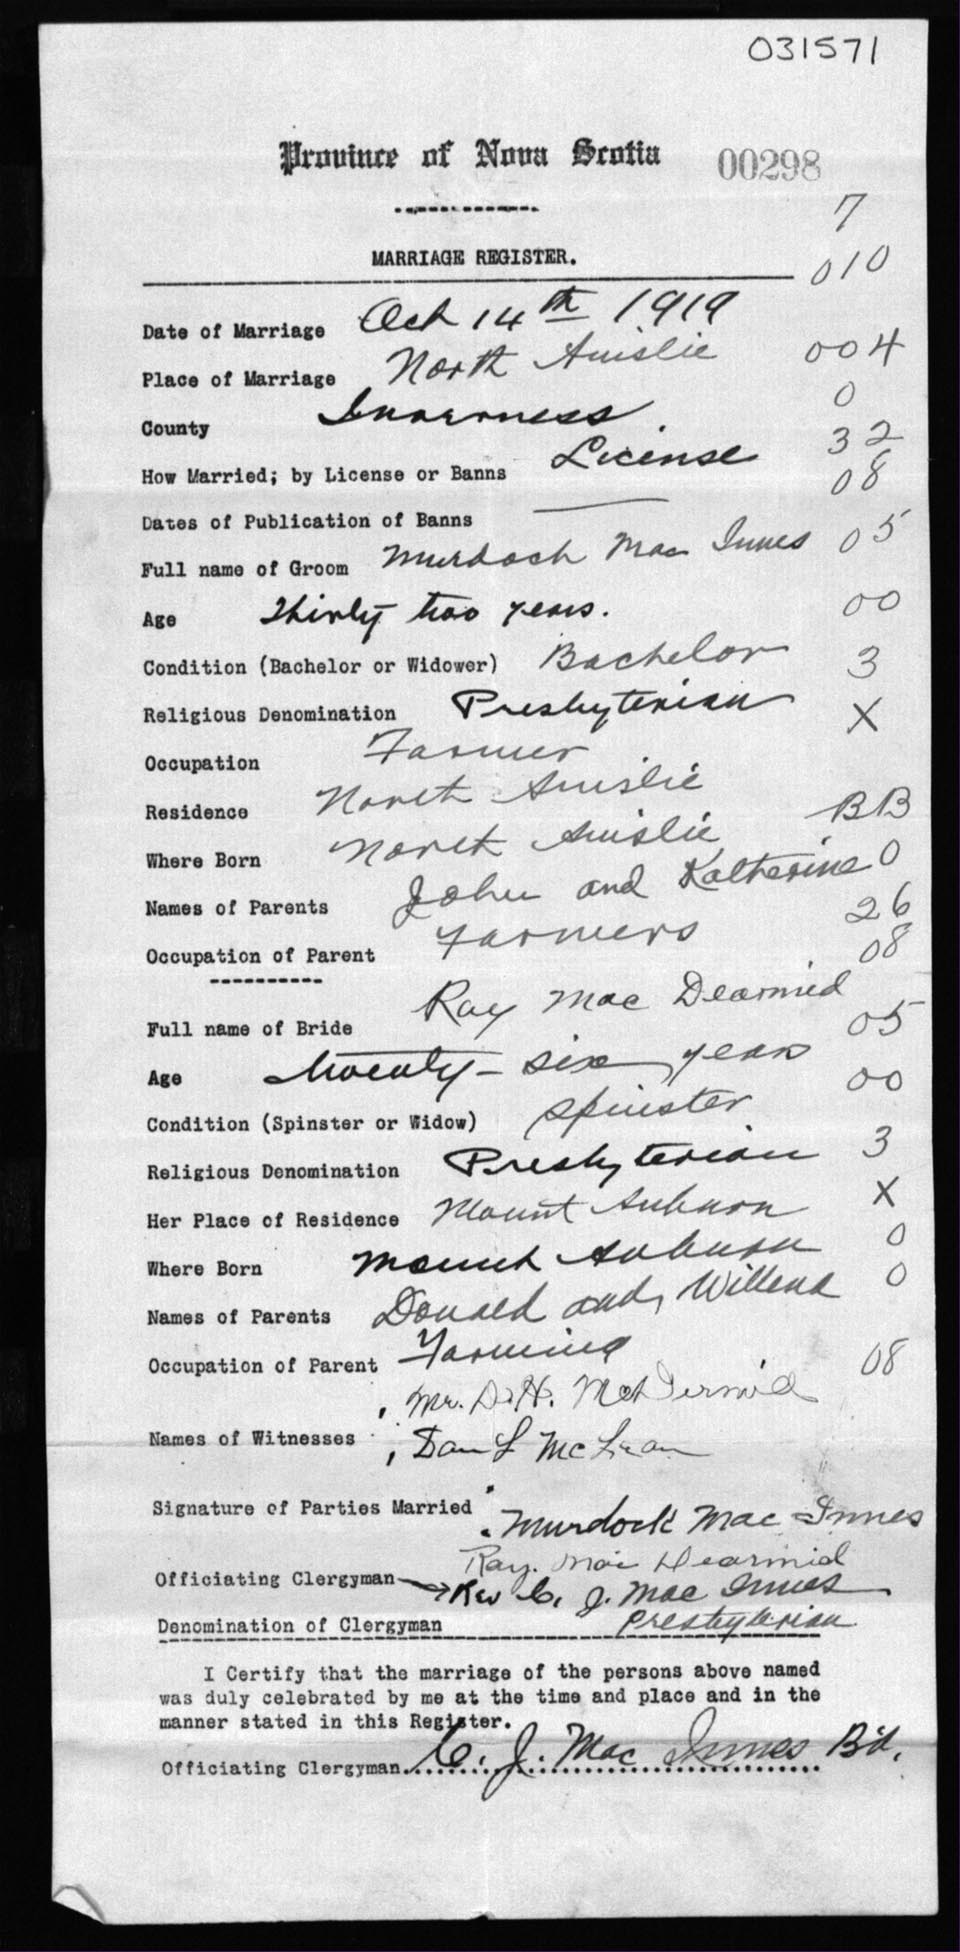 031571
Province of Nova Scotia 00298
7
MARRIAGE REGISTER.
010
Date of Marriage Oct 14th 1919
Place of Marriage North Ainslie 004
0
County Inverness
32
How Married; by License or Banns License
08
Dates of Publication of Banns
Full name of Groom Murdoch Mac Innes 05
Age Thirty two years. 00
Condition (Bachelor or Widower) Bachelor 3
Religious Denomination Presbyterian X
Occupation Farmer
Residence North Ainslie BB
Where Born North Ainslie
Names of Parents John and Katherine 0
26
Occupation of Parent Farmers 08
Full name of Bride Ray Mac Dearmid
05
Age twenty-six years 00
Condition (Spinster or Widow) spinster
Religious Denomination Presbyterian 3
Her Place of Residence Mount Auburn X
Where Born Mount Auburn 0
Names of Parents Donald and Willena 0
Occupation of Parent Farming 08
Mr. D. H. McDermid
Names of Witnesses Dan L McLean
Signature of Parties Married Murdock Mac Innes
Ray. Mac Dearmid
Officiating Clergyman Rev C. J. Mac Innes
Denomination of Clergyman Presbyterian
I Certify that the marriage of the persons above named
was duly celebrated by me at the time and place and in the
manner stated in this Register.
Officiating Clergyman C. J. Mac Innes